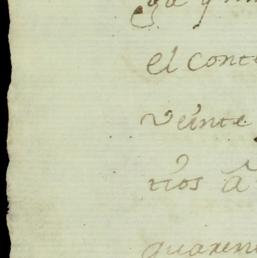 el cont
veinte
tios â
quaren